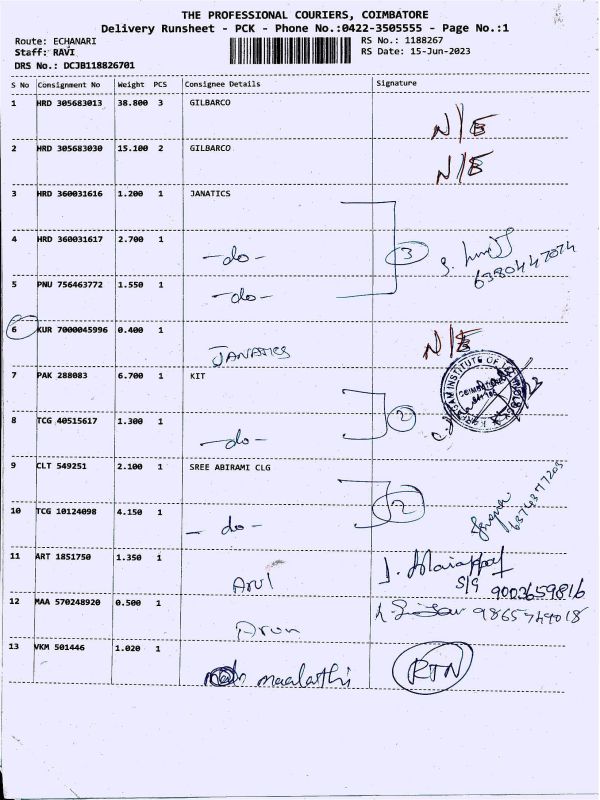 THE PROFESSIONAL COURIERS, COIMBATORE
Delivery Runsheet - PCK - Phone No.:0422-3505555 - Page No.:1
Route: ECHANARI RS No.: 1188267
Staff: RAVI RS Date: 15-Jun-2023
DRS No.: DCJB118826701
S No Consignment No Weight PCS Consignee Details Signature
1 HRD 305683013 38.800 3 GILBARCO
N/E
2 HRD 305683030 15.100 2 GILBARCO
N/E
3 HRD 360031616 1.200 1 JANATICS
4 HRD 360031617 2.700 1 -do- 3
6380447074
5 PNU 756463772 1.550 1 -do-
6 KUR 7000045996 0.400 1 JANATICS N/E
7 PAK 288083 6.700 1 KIT
KARPAGAM INSTITUTE OF TECHNOLOGY
COIMBATORE
8 TCG 40515617 1.300 1 -do- 2
9 CLT 549251 2.100 1 SREE ABIRAMI CLG
10 TCG 10124098 4.150 1 -do- 2
6374377203
11 ART 1851750 1.350 1 Arul
S/G 9003659816
12 MAA 570248920 0.500 1 Arun 9865749018
13 VKM 501446 1.020 1 maalathi RTN